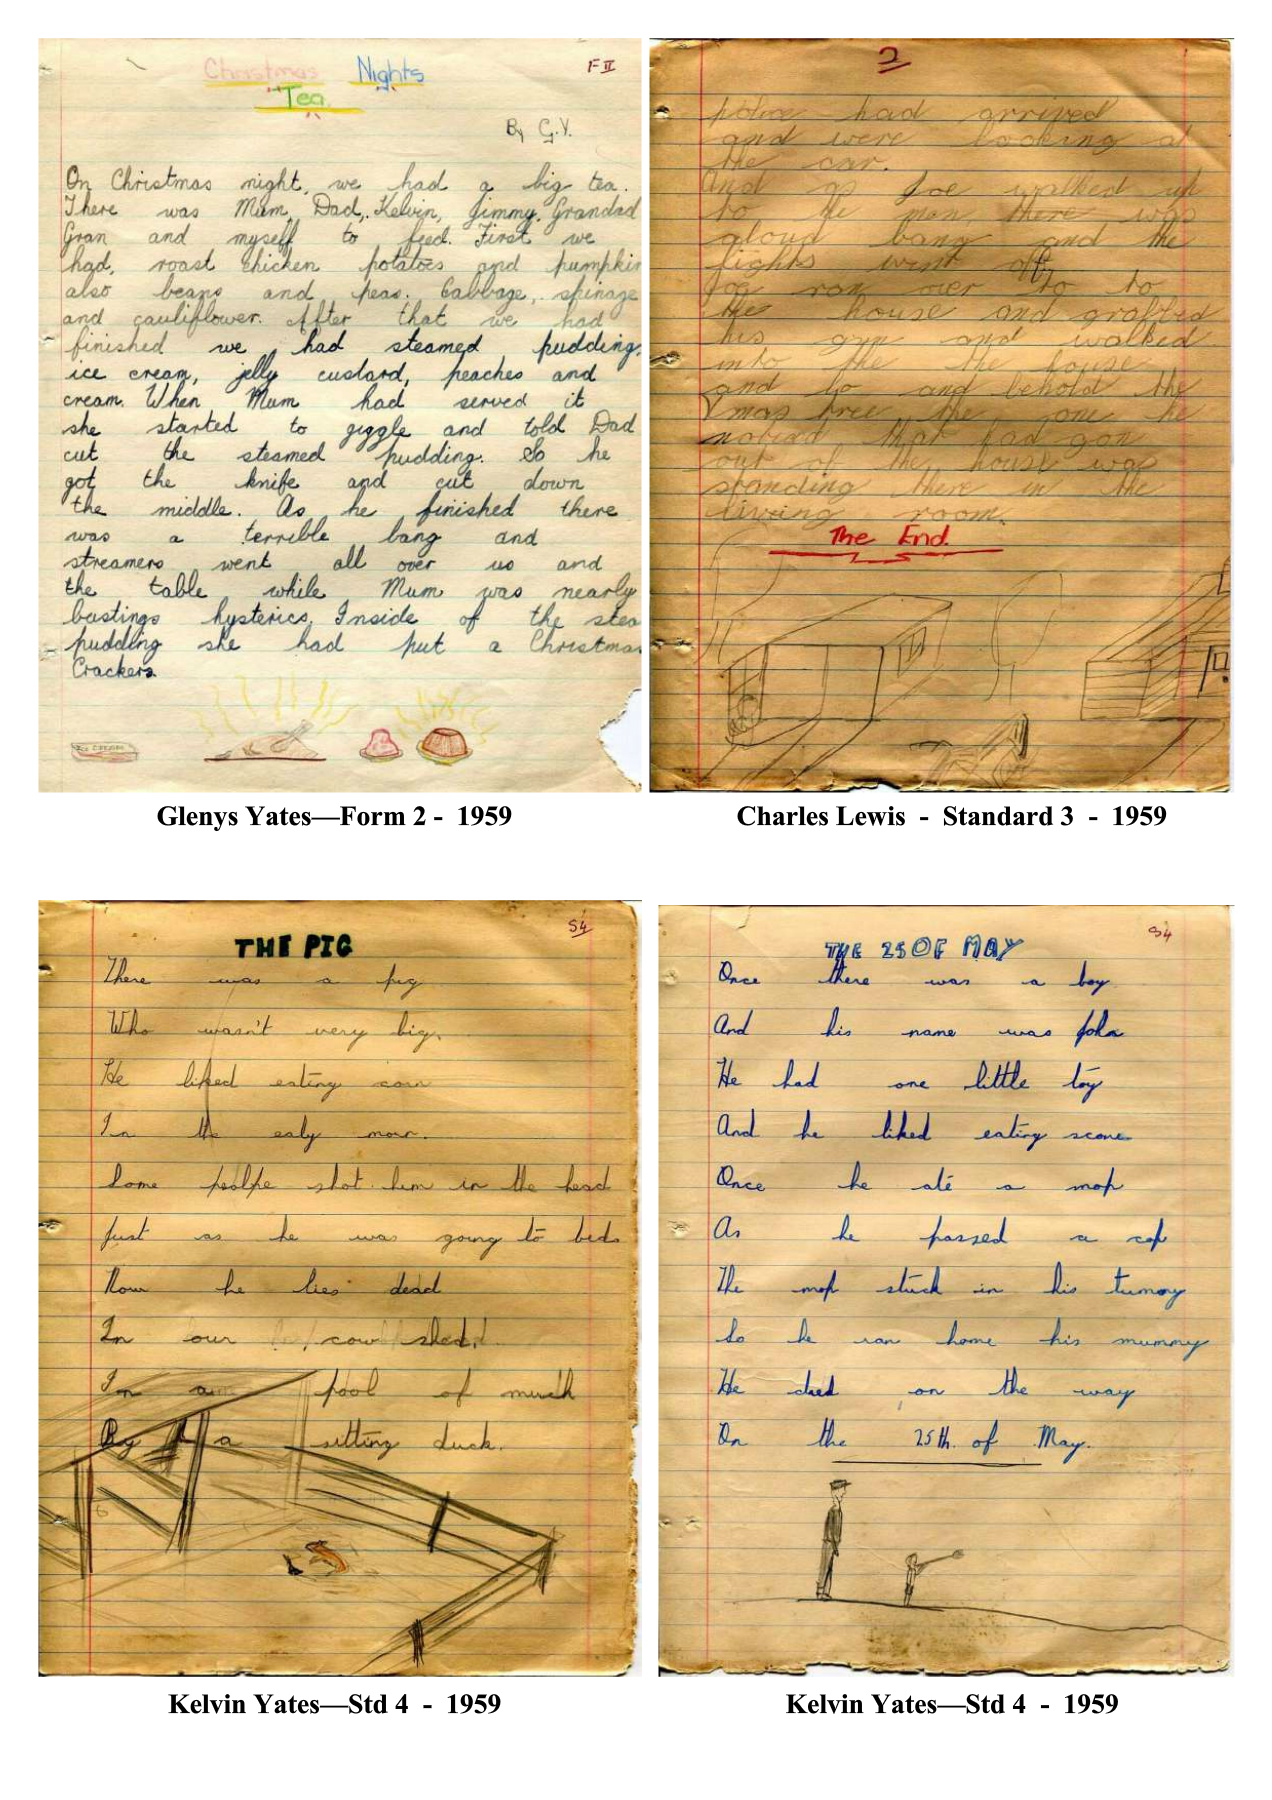 Christmas Nights
Tea
F II
By G.Y.
On Christmas night, we had a big tea.
There was Mum, Dad, Kelvin, Jimmy, Grandad
Gran and myself to feed. First we
had, roast chicken potatoes and pumpkin
also beans and peas. Cabbage, spinage
and cauliflower. After that we had
finished we had steamed pudding,
ice cream, jelly custard, peaches and
cream. When Mum had served it
she started to giggle and told Dad
cut the steamed pudding. So he
got the knife and cut down
the middle. As he finished there
was a terrible bang and
streamers went all over us and
the table while Mum was nearly
bustings hysterics. Inside of the stea
pudding she had put a Christmas
Crackers
ICE CREAM
Glenys Yates—Form 2 - 1959
2
police had arrived
and were looking at
the car.
And as Joe walked up
to the man there was
aloud bang and the
lights went off
Joe ran over to to
the house and grafbed
his gun and walked
into the the house
and lo and behold the
Xmas tree the one he
noticed that had gon
out of the house was
standing there in the
living room.
The End
Charles Lewis - Standard 3 - 1959
S4
THE PIG
There was a pig
Who wasn't very big,
He liked eating corn
In the ealy morn.
Some peolpe shot him in the head
Just as he was going to beds
Now he lies dead
In our cow shed.
In a pool of muck
By a sitting duck.
Kelvin Yates—Std 4 - 1959
S4
THE 25 OF MAY
Once there was a boy
And his name was John
He had one little toy
And he liked eating scone
Once he ate a mop
As he passed a cop
The mop stuck in his tummy
So he ran home his mummy
He died on the way
On the 25th. of May.
Kelvin Yates—Std 4 - 1959